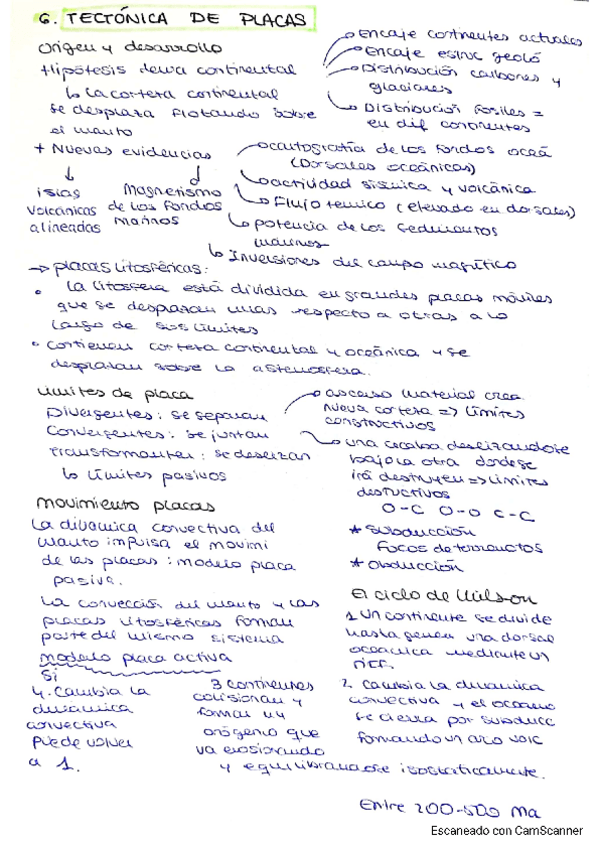 6. TECTÓNICA DE PLACAS
Origen y desarrollo
Hipótesis deriva continental
↳ La corteza continental
se desplaza flotando sobre
el manto
→ Encaje continentes actuales
→ Encaje estruc geoló
→ Distribución carbones y
glaciares
→ Distribución fósiles =
en dif continentes
+ Nuevas evidencias
↓ ↓
islas
volcánicas
alineadas
Magnetismo
de los fondos
marinos
→ cartografía de los fondos oceá
(Dorsales oceánicas)
→ actividad sísmica y volcánica
→ Flujo térmico (elevado en dorsales)
↳ potencia de los sedimentos
marinos
↳ Inversiones del campo magnético
→ placas litosféricas:
• La litosfera está dividida en grandes placas móviles
que se desplazan unas respecto a otras a lo
largo de sus límites
• contienen corteza continental y oceánica y se
desplazan sobre la astenosfera.
Límites de placa
Divergentes: se separan
Convergentes: se juntan
Transformantes: se deslizan
↳ límites pasivos
→ ascenso material crea
nueva corteza => límites
constructivos
→ una acaba deslizándose
bajo la otra donde se
irá destruyen => límites
destructivos
O-C O-O C-C
* Subducción
Focos de terremotos
* Obducción
Movimiento placas
La dinámica convectiva del
manto impulsa el movimi
de las placas: modelo placa
pasiva.
La convección del manto y las
placas litosféricas forman
parte del mismo sistema
modelo placa activa
Si
El ciclo de Wilson
1 Un continente se divide
hasta generar una dorsal
oceánica mediante un
rift.
2 Cambia la dinámica
convectiva y el océano
se cierra por subducc
formando un arco volc
3 continentes
colisionan y
forman un
orógeno que
va erosionando
y equilibrandose isostáticamente.
4. Cambia la
dinámica
convectiva
puede volver
a 1.
Entre 200-500 Ma
Escaneado con CamScanner